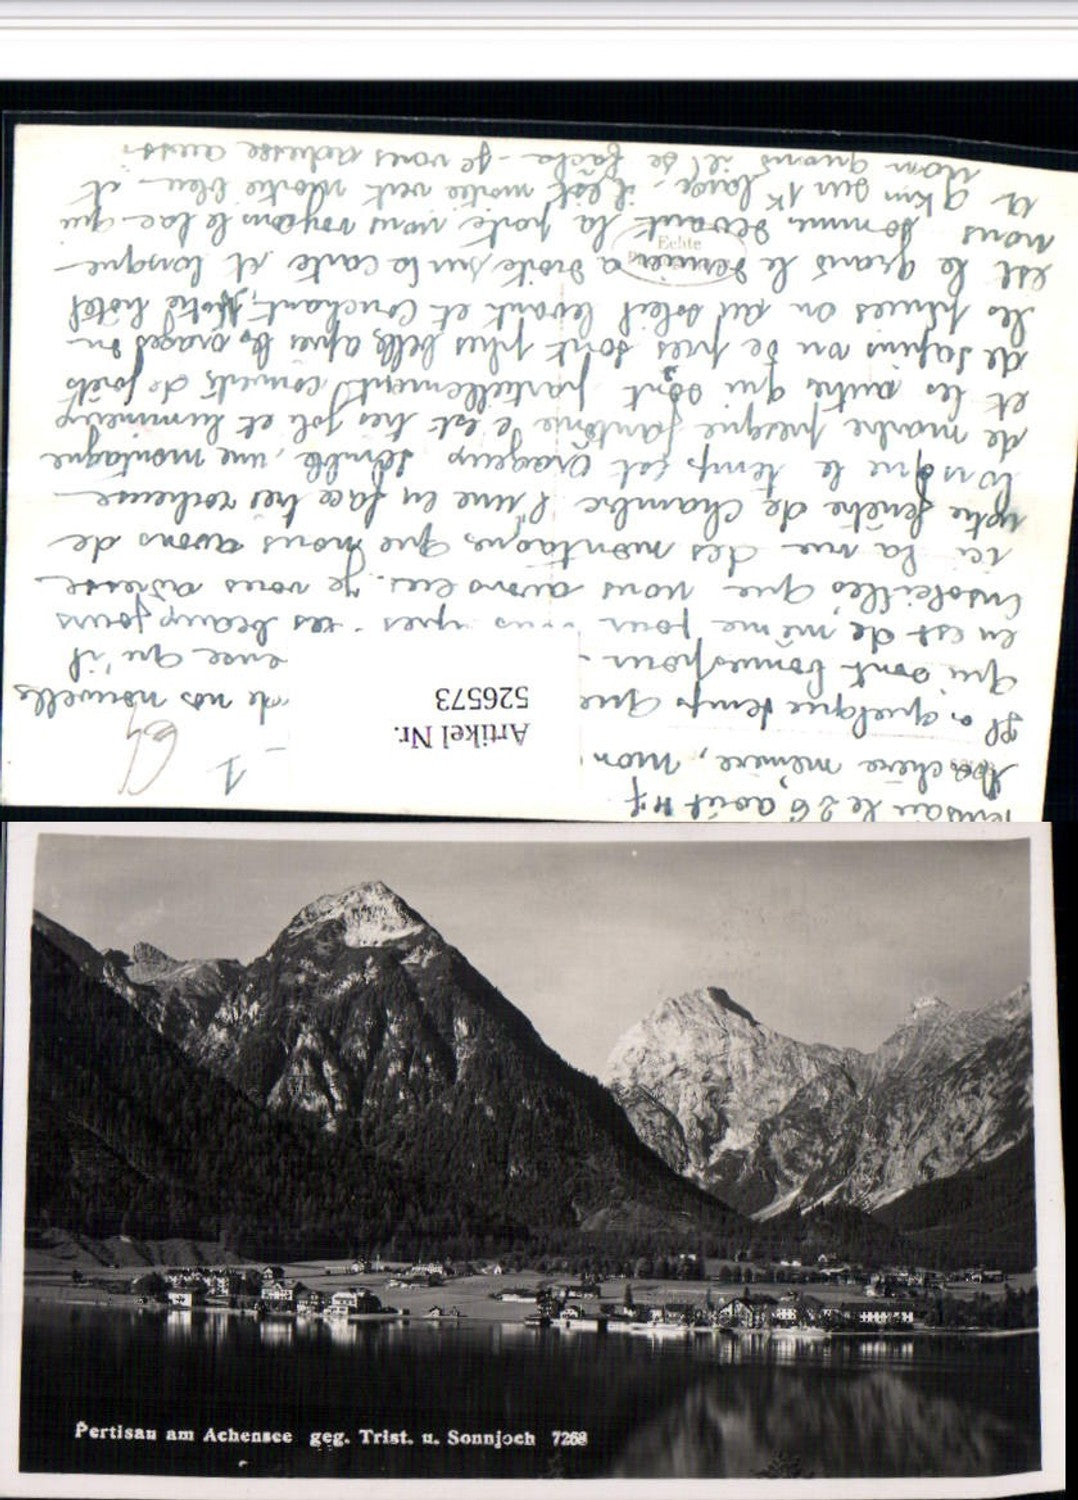 Pertisau le 26 août 47
Ma chère mémère, mon
Il a quelque temps que de nos nouvelle
qui sont bonnes pour ence qu'il
en est de même pour vous - ces beaux jours
ensoleillés que nous avons eus. je vous adresse
ici la vue des montagnes que nous avons de
notre fenêtre de chambre l'une en face très rocheuse
lorsque le temps est orageux semble une montagne
de marbre presque fantôme c'est très joli et lumineux
et les autres qui sont partiellement couverts de forêts
de sapins vu de près sont plus belle après les orages ou
les pluies ou au soleil levant et couchant, Notre hôtel
est le grand le dernier a droite sur la carte et lorsque
nous sommes devant la porte nous voyons le lac qui
a 9 km sur 1k large - il est moitié vert moitié bleu - et
mon quand il se fâcha - je vous adresse aussi
Echte
1
Artikel Nr.
526573
Pertisau am Achensee geg. Trist. u. Sonnjoch 7268